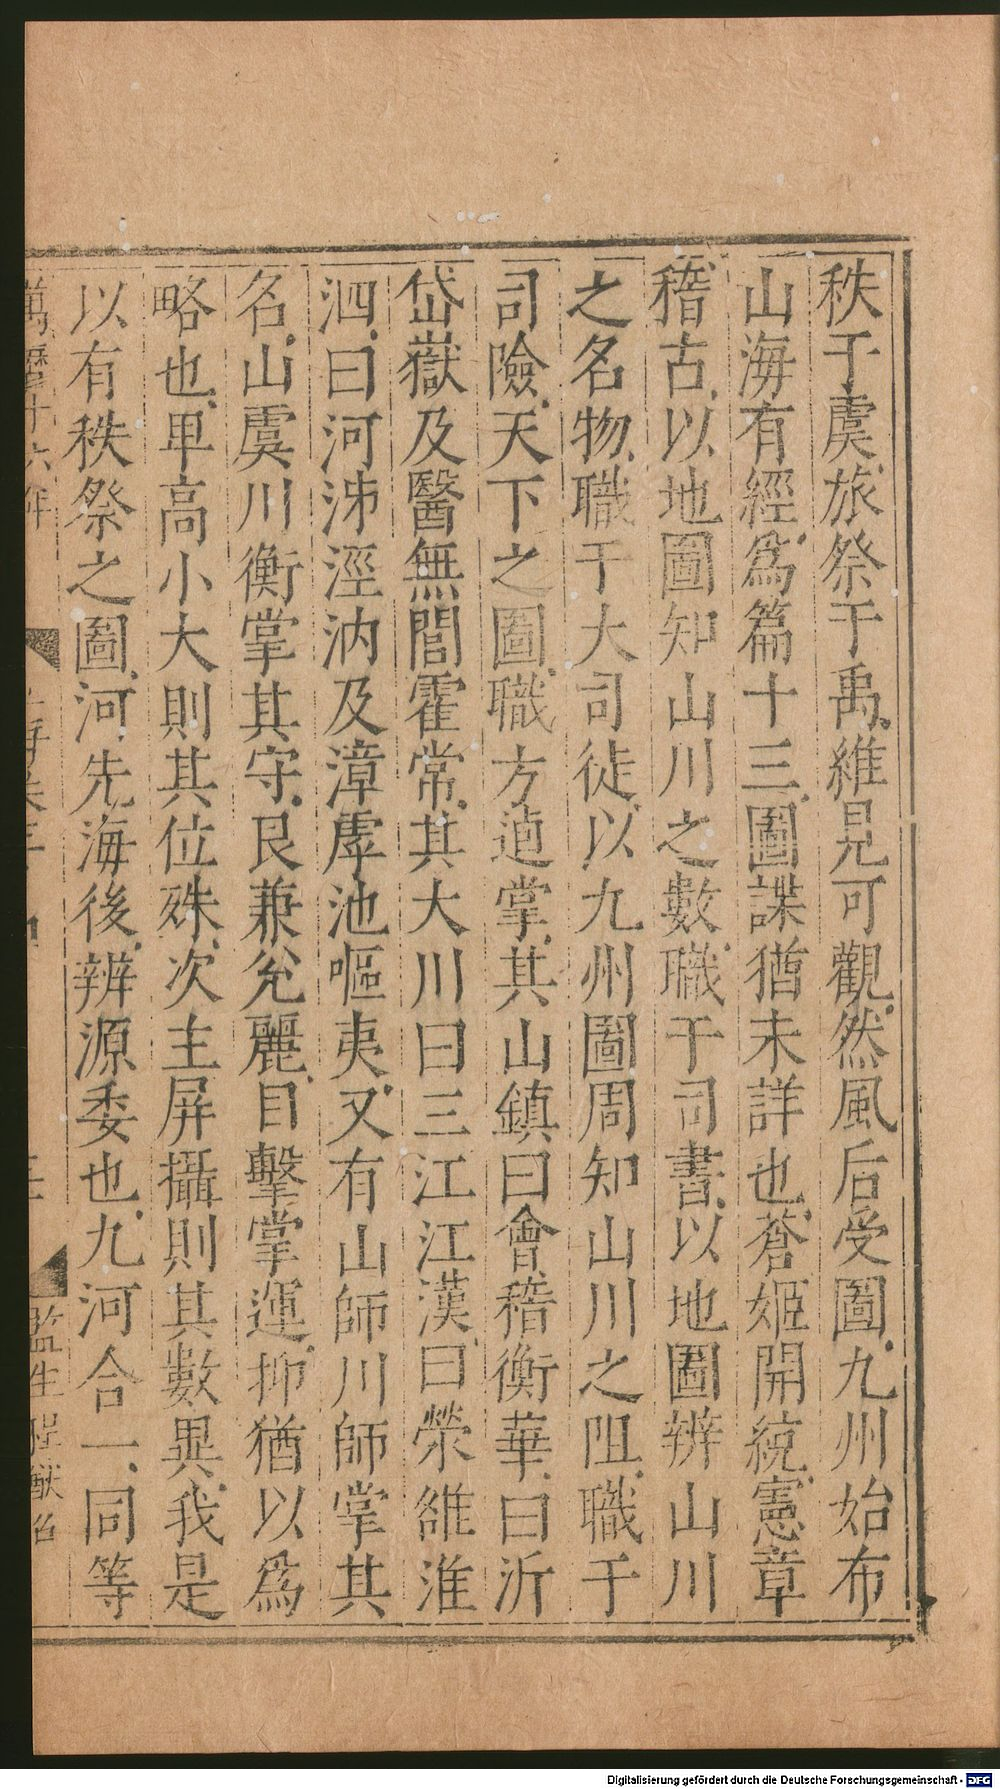 秩于虞旅祭于禹維晃可觀然風后受圖九州始布
山海有經爲篇十三圖諜猶未詳也蒼姬開統憲章
稽古以地圖知山川之數職于司書以地圖辨山川
之名物職于大司徒以九州圖周知山川之阻職于
司險天下之圖職方逌掌其山鎮曰會稽衡華曰沂
岱嶽及醫無閭霍常其大川曰三江江漢曰滎雒淮
泗曰河泲涇汭及漳虖池嘔夷又有山師川師掌其
名山虞川衡掌其守艮兼兊麗目擊掌運抑猶以爲
略也卑高小大則其位殊次主屏攝則其數異我是
以有秩祭之圖河先海後辨源委也九河合一同等
萬曆十六年
監生程猷
Digitalisierung gefördert durch die Deutsche Forschungsgemeinschaft - DFG